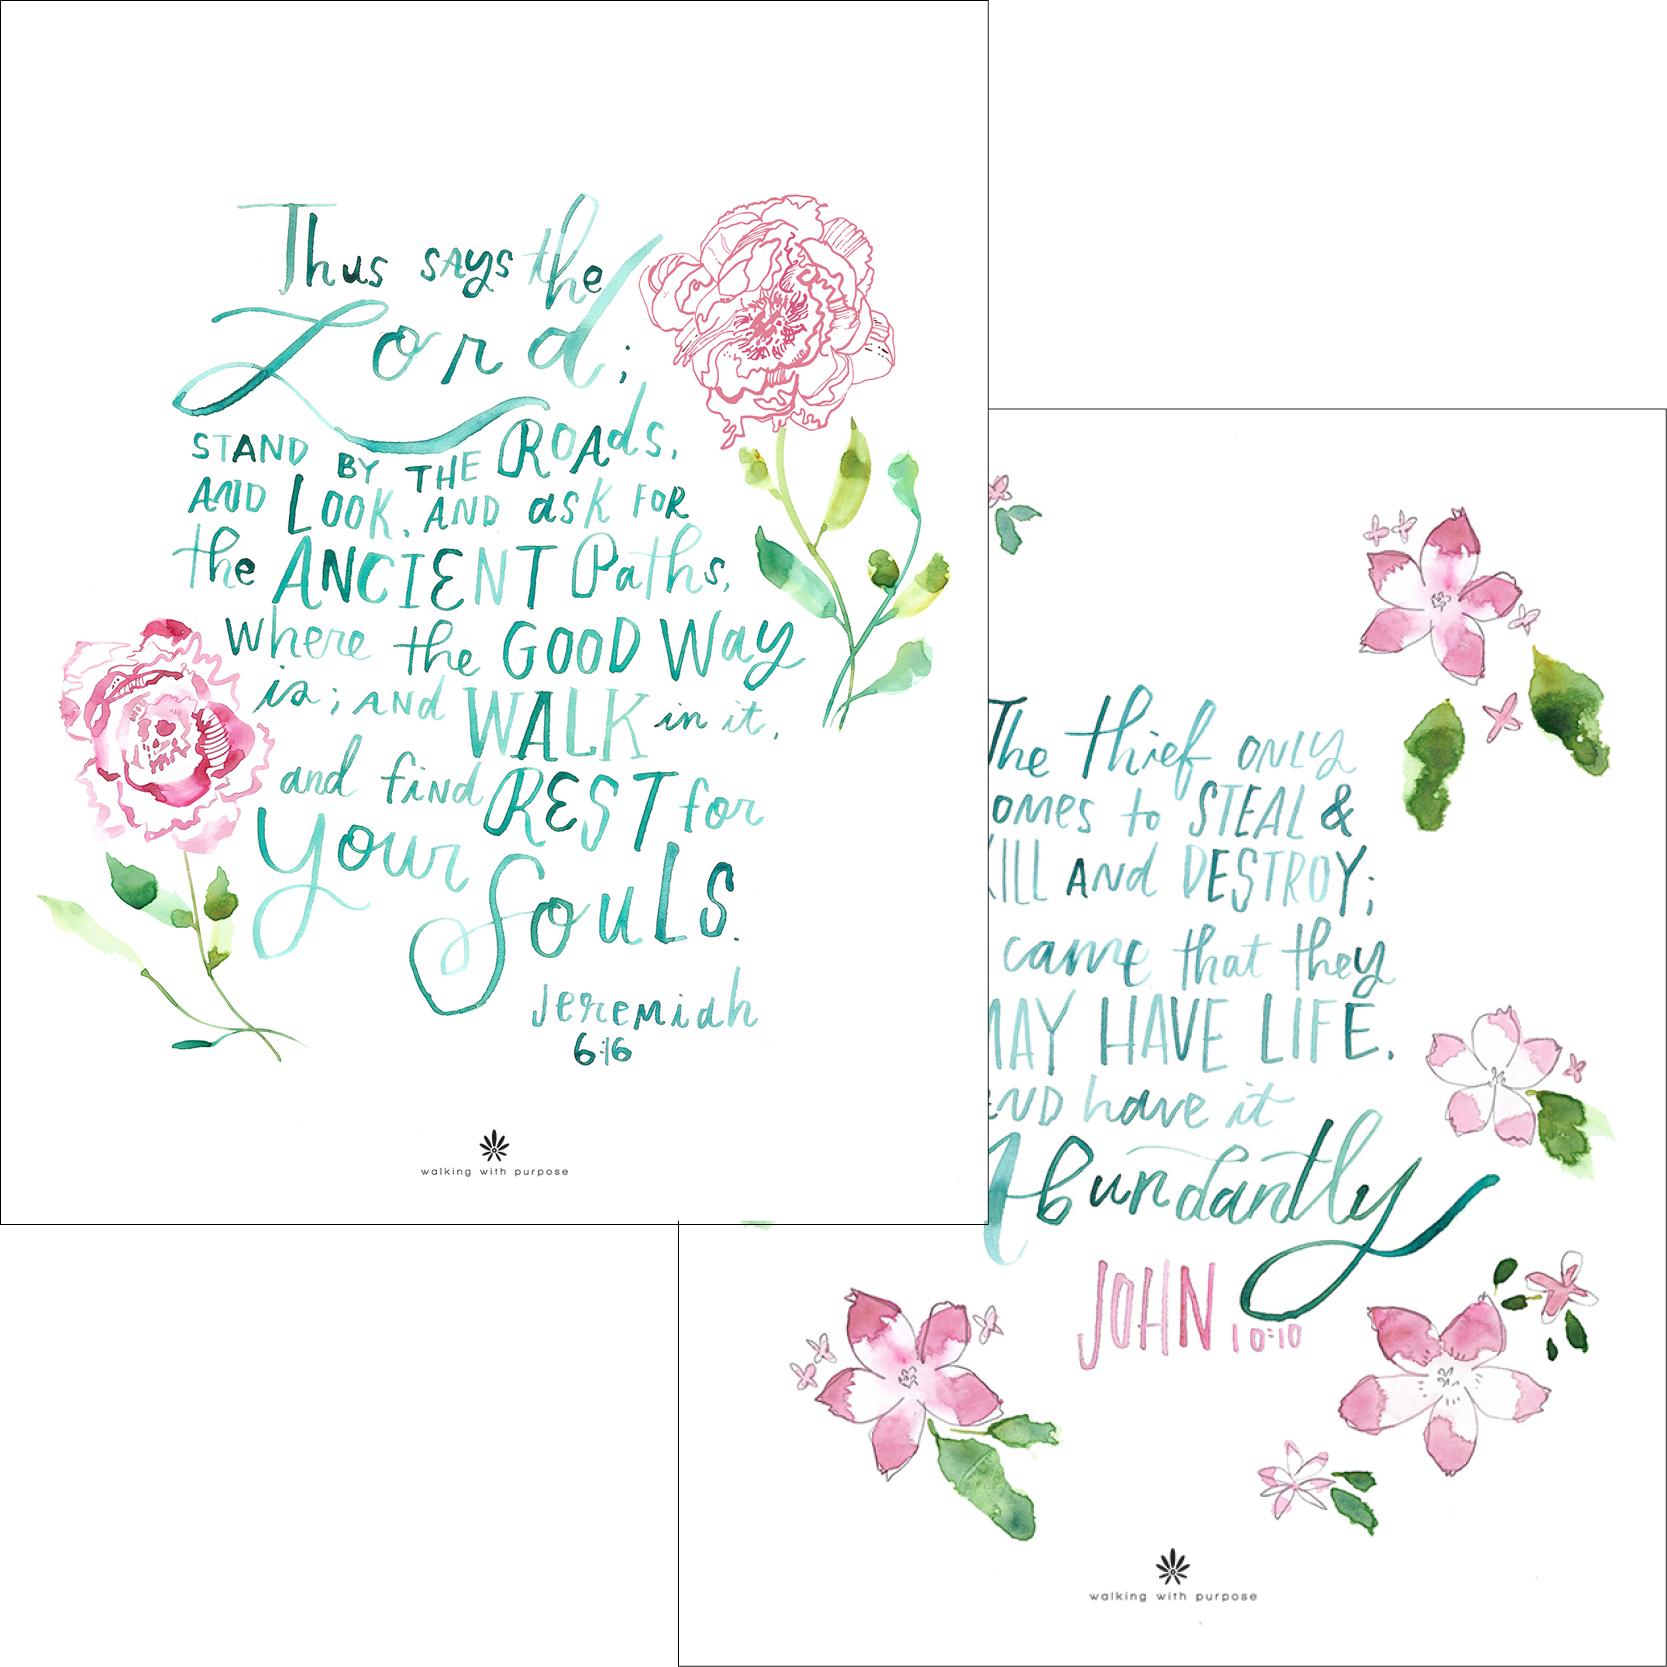 Thus says the
Lord;
STAND BY THE ROAds,
AND LOOK, AND ask FOR
the ANCIENT Paths,
where the GOOD Way
is; AND WALK in it,
and find REST for
your
SouLs.
Jeremiah
6:16
walking with purpose
The thief ONLY
omes to STEAL &
KILL AND DESTROY;
came that they
MAY HAVE LIFE.
AND have it
Abundantly
JOHN 10:10
walking with purpose